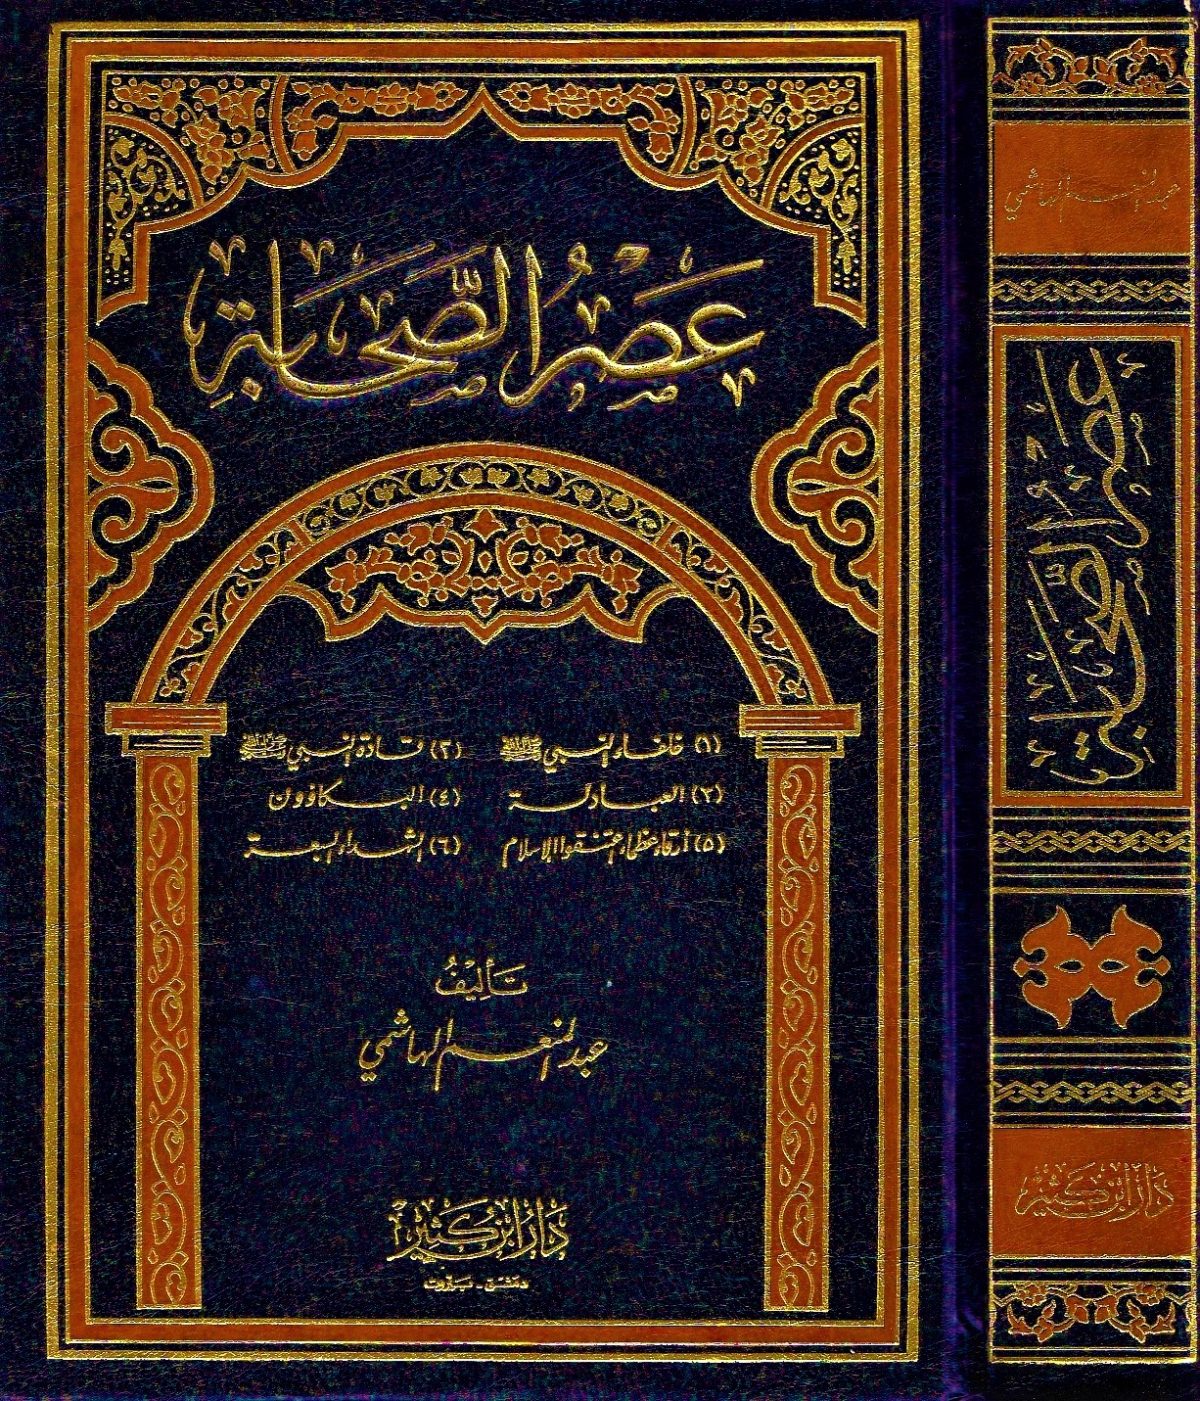 عَصْرُ الصَّحَابَةِ
(١) خلفاء النبي ﷺ (٣) قادة النبي ﷺ
(٢) العبادلة (٤) البكاؤون
(٥) أرقاء عظماء اعتنقوا الإسلام (٦) الشهداء السبعة
تأليفُ
عبد المنعم الهاشمي
دار ابن كثير
دمشق - بيروت
عبد المنعم الهاشمي
عَصْرُ الصَّحَابَةِ
دار ابن كثير